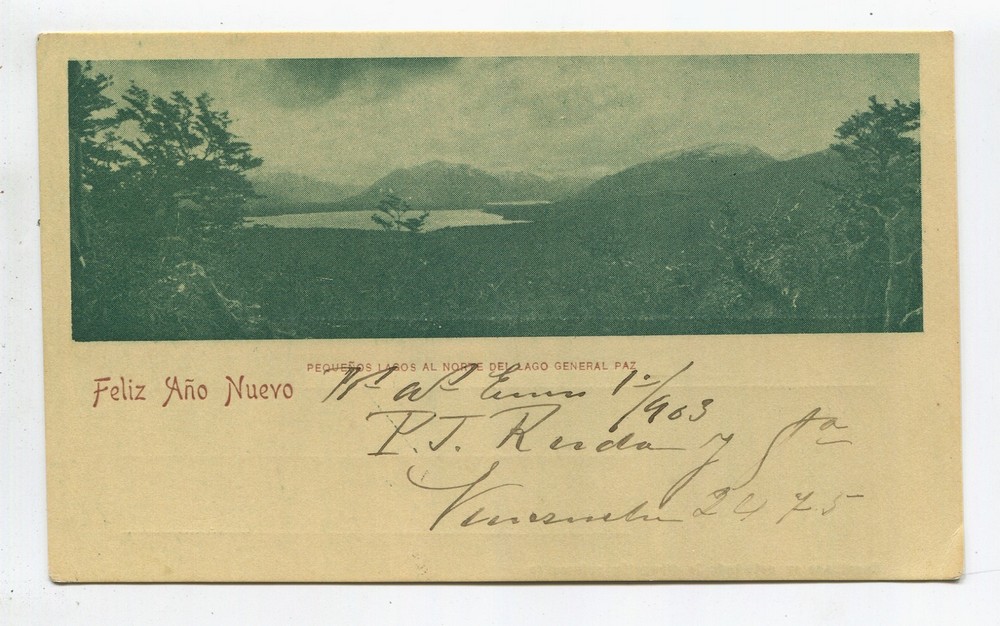 PEQUEÑOS LAGOS AL NORTE DEL LAGO GENERAL PAZ
Feliz Año Nuevo
Enero 1º/903
P. J. Rueda y Sra
Venezuela 2475